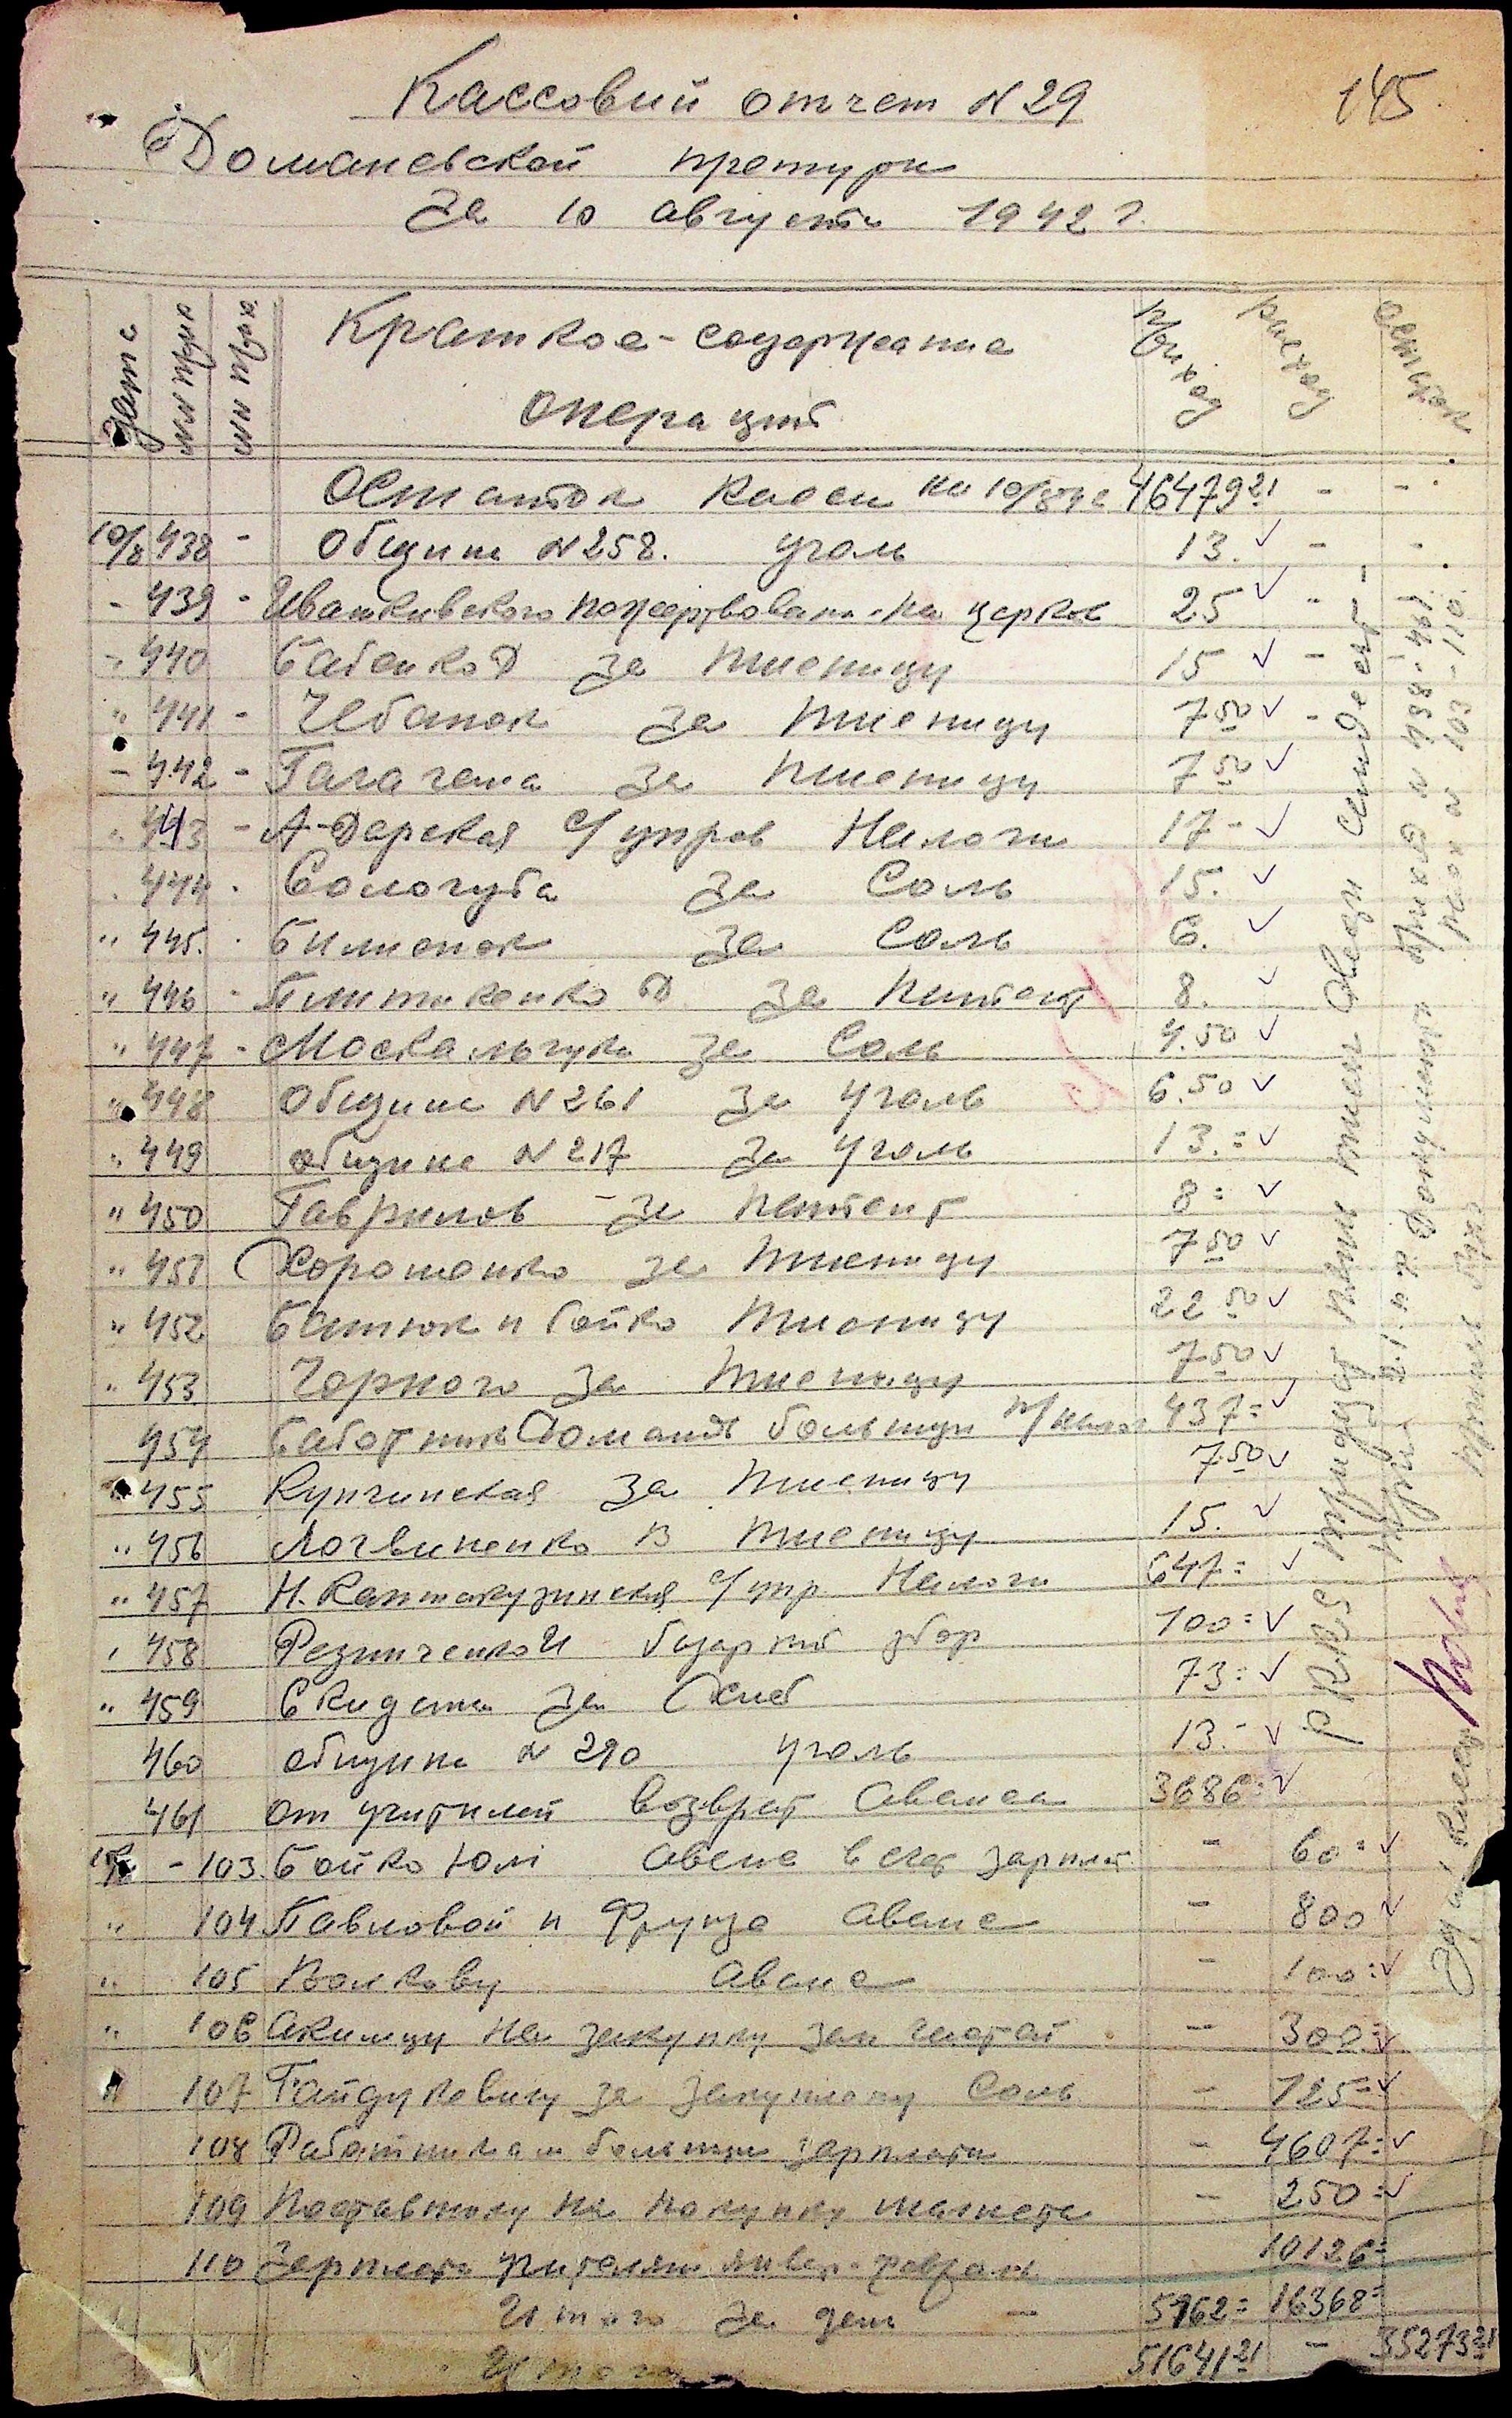 145.
Кассовий отчет N 29
Доманевской претури
За 10 августа 1942 г.
Дата
NN прих
NN
Краткое-содержание
операций
приход
расход
остаток
Остаток каси на 10/8 46479 21 - -
10/8 438 - Общини N 258. уголь 13. ✓ - -
- 439 - Ивашкивского пожертвовани на церков 25 ✓ -
" 440 Бабенко Д за пшеницу 15 ✓ -
" 441 - Чебанок за пшеницу 7 50 ✓ -
- 442 - Гагачема за пшеницу 7 50 ✓
" 443 - А-Дарская с/управ Налоги 17 - ✓
. 444 . Сологуба за Соль 15. ✓
" 445. . Билионок за Соль 6. ✓
" 446 - Плитикенко Д за патент 8. ✓
" 447 - Москальчука за Соль 4.50 ✓
" 448 Общине N 261 за уголь 6.50 ✓
" 449 общине N 217 за уголь 13.= ✓
" 450 Гаврилов - за патент 8= ✓
" 451 Хорошенко за пшеницу 7 50 ✓
" 452 Батюк и Бойко пшеницу 22 50 ✓
" 453 Чорного за пшеницу 7 50 ✓
454 Работник Доманов больници п/налог 437= ✓
" 455 Купчинская за пшеницу 7.50 ✓
" 456 Логвиненко В пшеницу 15. ✓
" 457 Н. Кантакузинская с/упр. Налоги 647= ✓
, 458 Резниченко И базарний збор 100= ✓
" 459 Скидана за Хлеб 73= ✓
460 общини N 290 уголь 13.- ✓
461 от учителей возврат Аванса 3686= ✓
- 103. Бойко Юлі Аванс в счет зарплат. - 60= ✓
" 104 Павловой и Фрунза Аванс - 800 ✓
" 105 Волкову Аванс - 100= ✓
" 106 Акимцу на закупку зап частей - 300= ✓
" 107 Гайдукевичу за закупленну Соль - 125= ✓
108 Работникам больници зарплати - 4607= ✓
109 Поставному на покупку - 250= ✓
110 Зарплата учителям январ-февраль 10126=
Итого за день - 5162= 16368=
Итого - 51641 21 - 35273 21
РККS тридцать пять тисяч двести семдесят -
три 21 к. документи приход N 438-461.
расход N 103-110.
принял бухг
Здал кассир